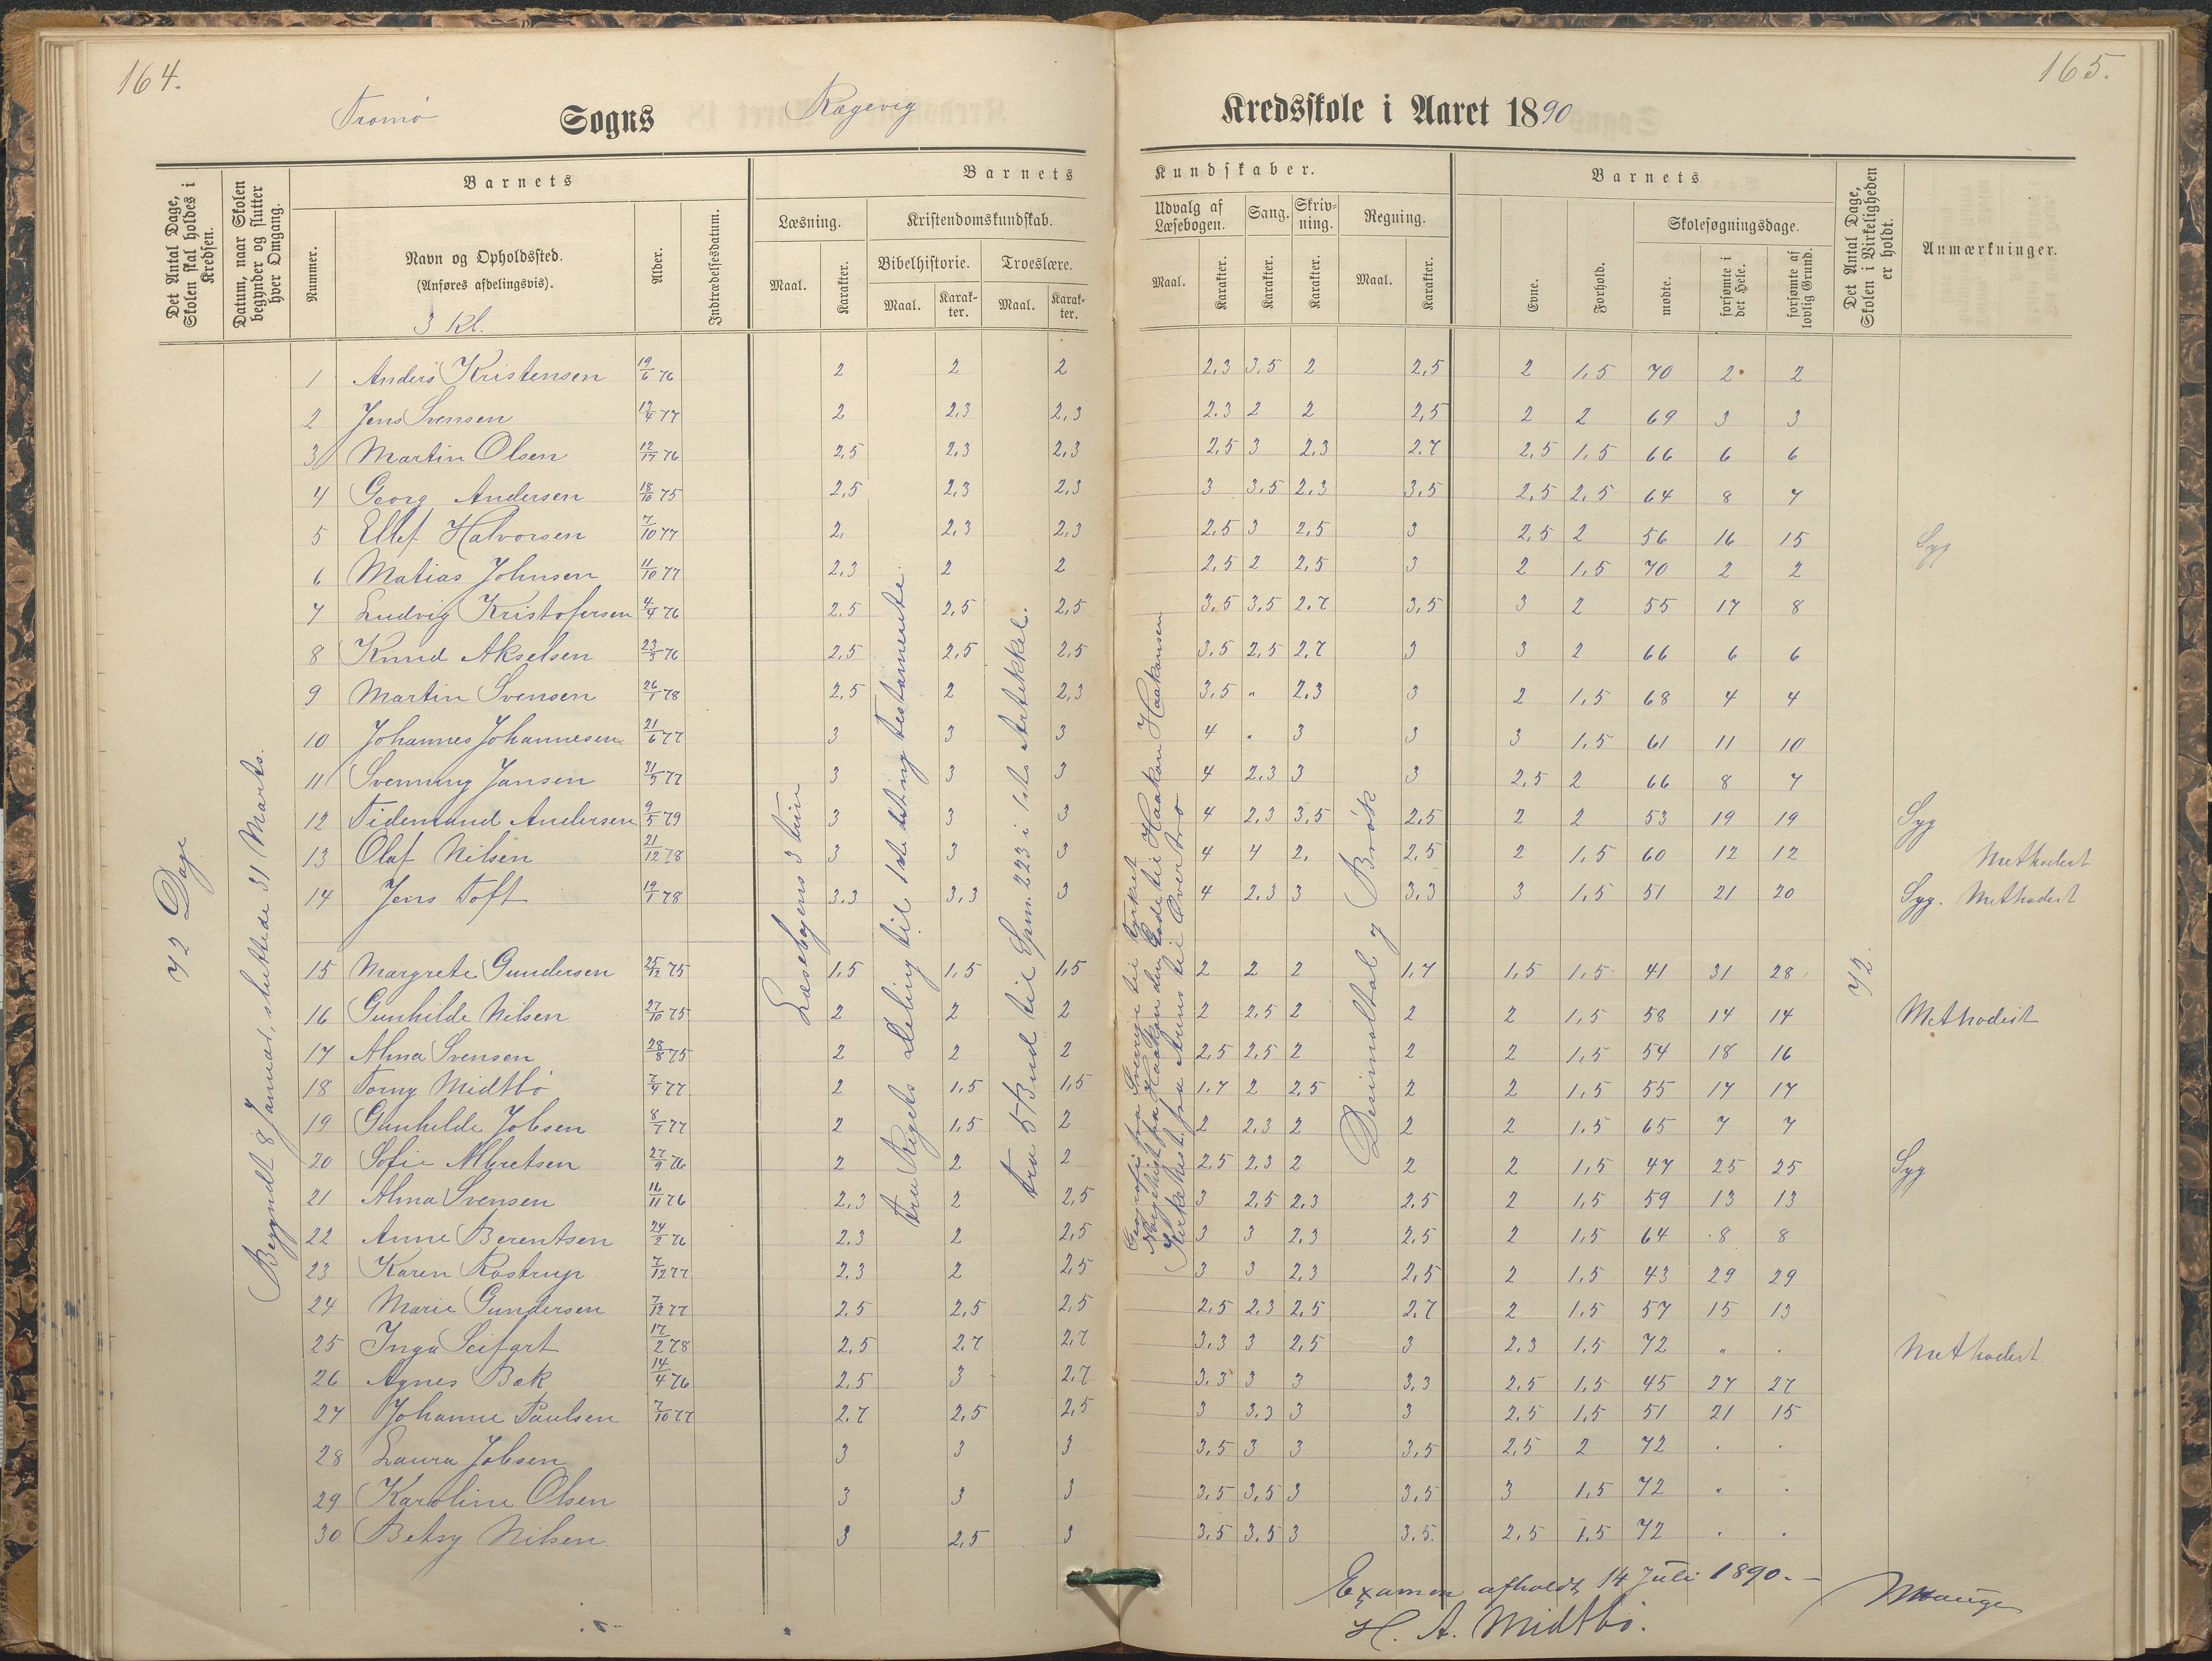 164.
165.
Tromø Sogns Rægevig Kredsskole i Aaret 1890
Det Antal Dage, Skolen skal holdes i Kredsen.
Datum, naar Skolen begynder og slutter hver Omgang.
Barnets
Nummer.
Navn og Opholdssted.
(Anføres afdelingsvis).
3 Kl.
Alder.
Indtrædelsesdatum.
Barnets Kundskaber.
Læsning.
Maal.
Karakter.
Kristendomskundskab.
Bibelhistorie.
Maal.
Karakter.
Troeslære.
Maal.
Karakter.
Udvalg af Læsebogen.
Maal.
Karakter.
Sang.
Karakter.
Skrivning.
Karakter.
Regning.
Maal.
Karakter.
Barnets
Evne.
Forhold.
Skolesøgningsdage.
mødte.
forsømte i det Hele.
forsømte af lovlig Grund.
Det Antal Dage, Skolen i Virkeligheden er holdt.
Anmærkninger.
72 Dage
Begyndt 8 Januar, sluttede 31 Marts.
Læsebogens 3 trin
fra Rigets Deling til 1ste detny testamente.
fra 5 Bud til Spm. 223 i 1ste Artikkel.
Geografi fra Sverige til tyrkiet
Norgehist fra Haakon den Gode til Haakon Haakonsen
Kirkehist. fra Arius til Overtro
Desimaltal og Brøk
72
1 Anders Kristensen 19/6 76 2 2 2 2,3 3,5 2 2,5 2 1,5 70 2 2
2 Jens Svensen 12/4 77 2 2,3 2,3 2.3 2 2 2,5 2 2 69 3 3
3 Martin Olsen 12/17 76 2,5 2,3 2,3 2,5 3 2,3 2.7 2,5 1,5 66 6 6
4 Georg Andersen 18/10 75 2,5 2,3 2,3 3 3,5 2,3 3,5 2,5 2,5 64 8 7
5 Ellef Halvorsen 7/10 77 2, 2,3 2,3 2,5 3 2,5 3 2,5 2 56 16 15 Syg
6 Matias Johnsen 11/10 77 2,3 2 2 2,5 2 2,5 3 2 1,5 70 2 2
7 Ludvig Kristofersen 4/4 76 2.5 2,5 2,5 3,5 3,5 2.7 3,5 3 2 55 17 8
8 Knud Akselsen 23/3 76 2,5 2,5 2,5 3,5 2,5 2,7 3 3 2 66 6 6
9 Martin Svensen 26/1 78 2,5 2 2,3 3,5 " 2,3 3 2 1,5 68 4 4
10 Johannes Johannesen 21/6 77 3 3 3 4 " 3 3 3 1,5 61 11 10
11 Svenning Jansen 31/3 77 3 3 3 4 2,3 3 3 2,5 2 66 8 7
12 Tidemand Andersen 9/5 79 3 3 3 4 2,3 3,5 2,5 2 2 53 19 19 Syg
13 Olaf Nilsen 21/12 78 3 3 3 4 4 2, 2,5 2 1,5 60 12 12 Methodist
14 Jens Toft 19/1 78 3.3 3,3 3 4 2.3 3 3,3 3 1,5 51 21 20 Syg. Methodist
15 Margrete Gundersen 25/12 75 1,5 1,5 1,5 2 2 2 1,7 1,5 1,5 41 31 28
16 Gunhilde Nilsen 27/10 75 2 2 2 2 2,5 2 2 2 1,5 58 14 14 Methodist
17 Alma Svensen 28/8 75 2 2 2 2,5 2,5 2 2 2 1,5 54 18 16
18 Torny Midtbø 7/4 77 2 1,5 1,5 1.7 2 2,5 2 2 1,5 55 17 17
19 Gunhilde Jobsen 8/1 77 2 1,5 2 2 2,3 2 2 2 1,5 65 7 7
20 Sofie Albretsen 27/9 76 2 2 2 2,5 2,3 2 2 2 1,5 47 25 25 Syg
21 Alma Svensen 16/11 76 2,3 2 2,5 3 2,5 2,3 2.5 2 1,5 59 13 13
22 Anne Berentsen 24/2 76 2.3 2 2,5 3 3 2,3 2,5 2 1,5 64 8 8
23 Karen Rostrup 7/12 77 2,3 2 2,5 3 3 2,3 2,5 2 1,5 43 29 29
24 Marie Gundersen 7/12 77 2,5 2,5 2,5 2,5 2,3 2,5 2.7 2 1,5 57 15 13
25 Inga Seifart 17/2 78 2,5 2.7 2.7 3.3 3 2,5 3 2.3 1.5 72 " . Methodist
26 Agnes Bæk 14/4 76 2.5 3 2.7 3.3 3 3 3.3 2,5 1,5 45 27 27
27 Johanne Paulsen 7/10 77 2.7 2,5 2,5 3 3.3 3 3 2,5 1,5 51 21 15
28 Laura Jobsen 3 3 3 3,5 3 3 3,5 2,5 2 72 . .
29 Karoline Olsen 3 3 3 3,5 3,5 3 3,5 3 1,5 72 . .
30 Betsy Nilsen. 3 2,5 3 3,5 3,5 3 3,5. 2.5 1.5 72 . .
Examen afholdt 14 Juli 1890.-
H. A. Midtbø.